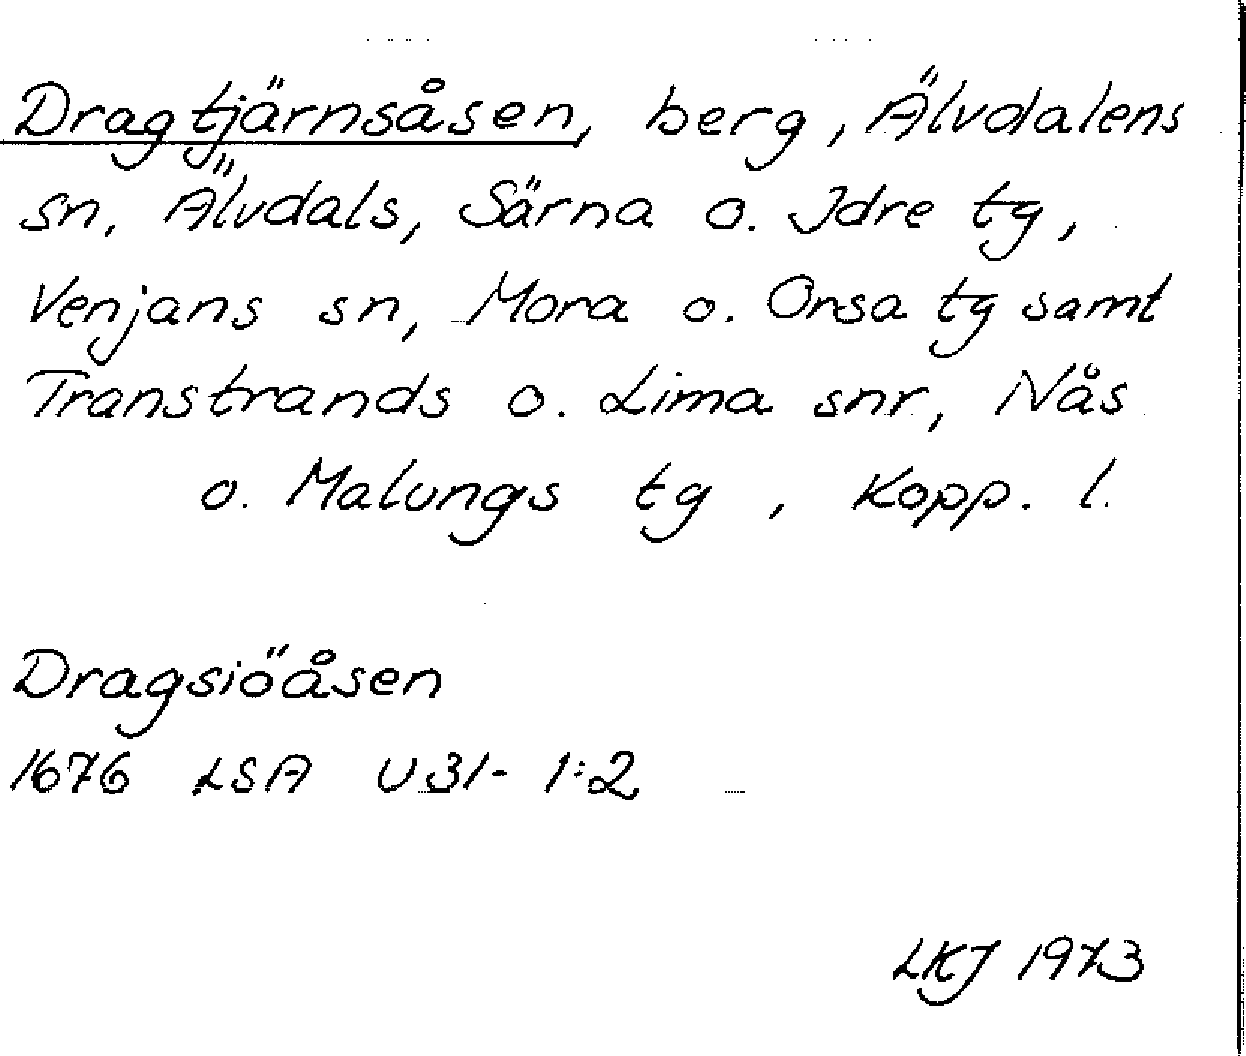 Dragtjärnsåsen, berg, Älvdalens
sn, Älvdals, Särna o. Idre tg,
Venjans sn, Mora o. Orsa tg samt
Transtrands o. Lima snr, Nås
o. Malungs tg, Kopp. l.
Dragsiöåsen
1676 LSA U31-1:2
LKJ 1973